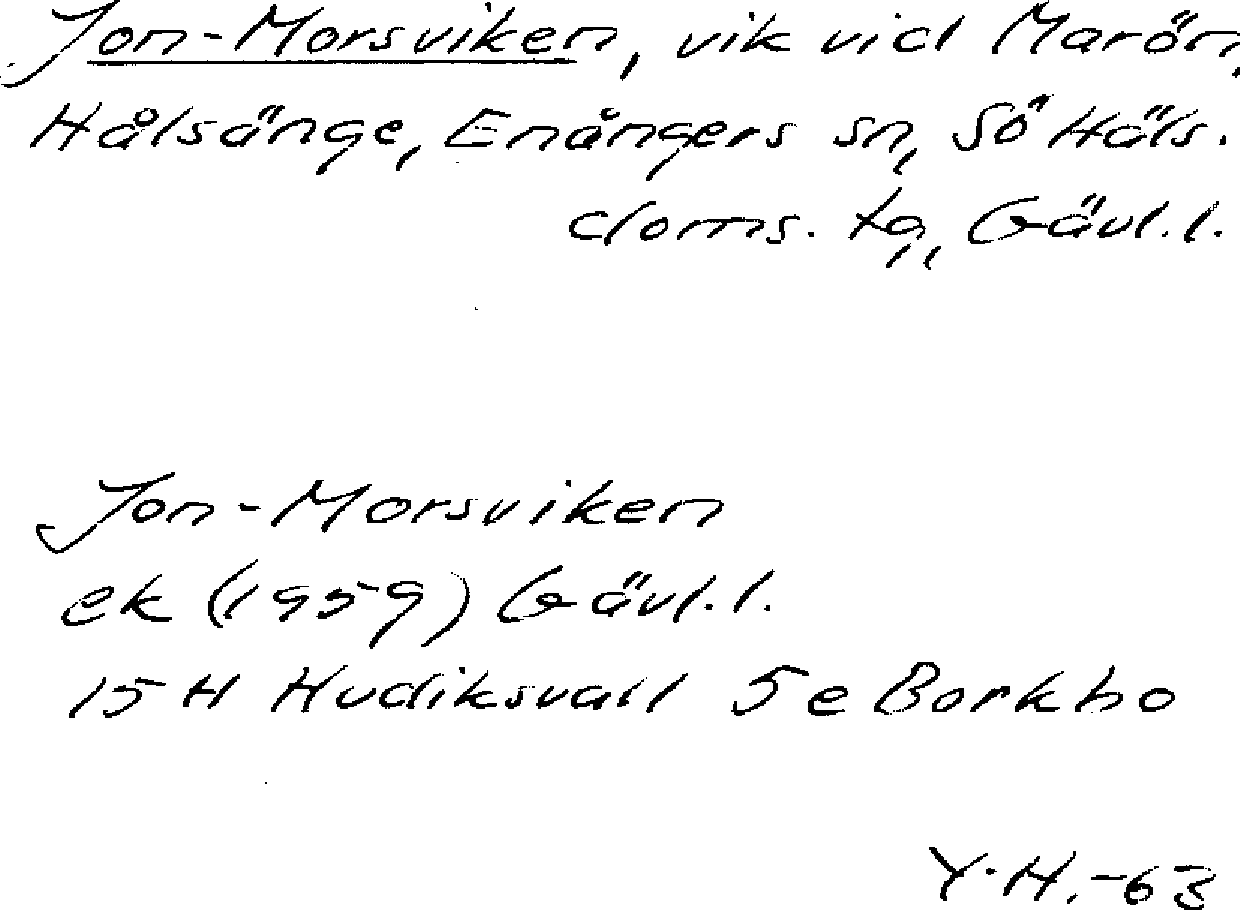 Jon-Morsviken, vik vid Marön,
Hålsänge, Enångers sn, Sö Häls.
doms. tg,, Gävl. l.
Jon-Morsviken
ek (1959) Gävl. l.
15 H Hudiksvall 5 e Borkbo
Y.H.-63